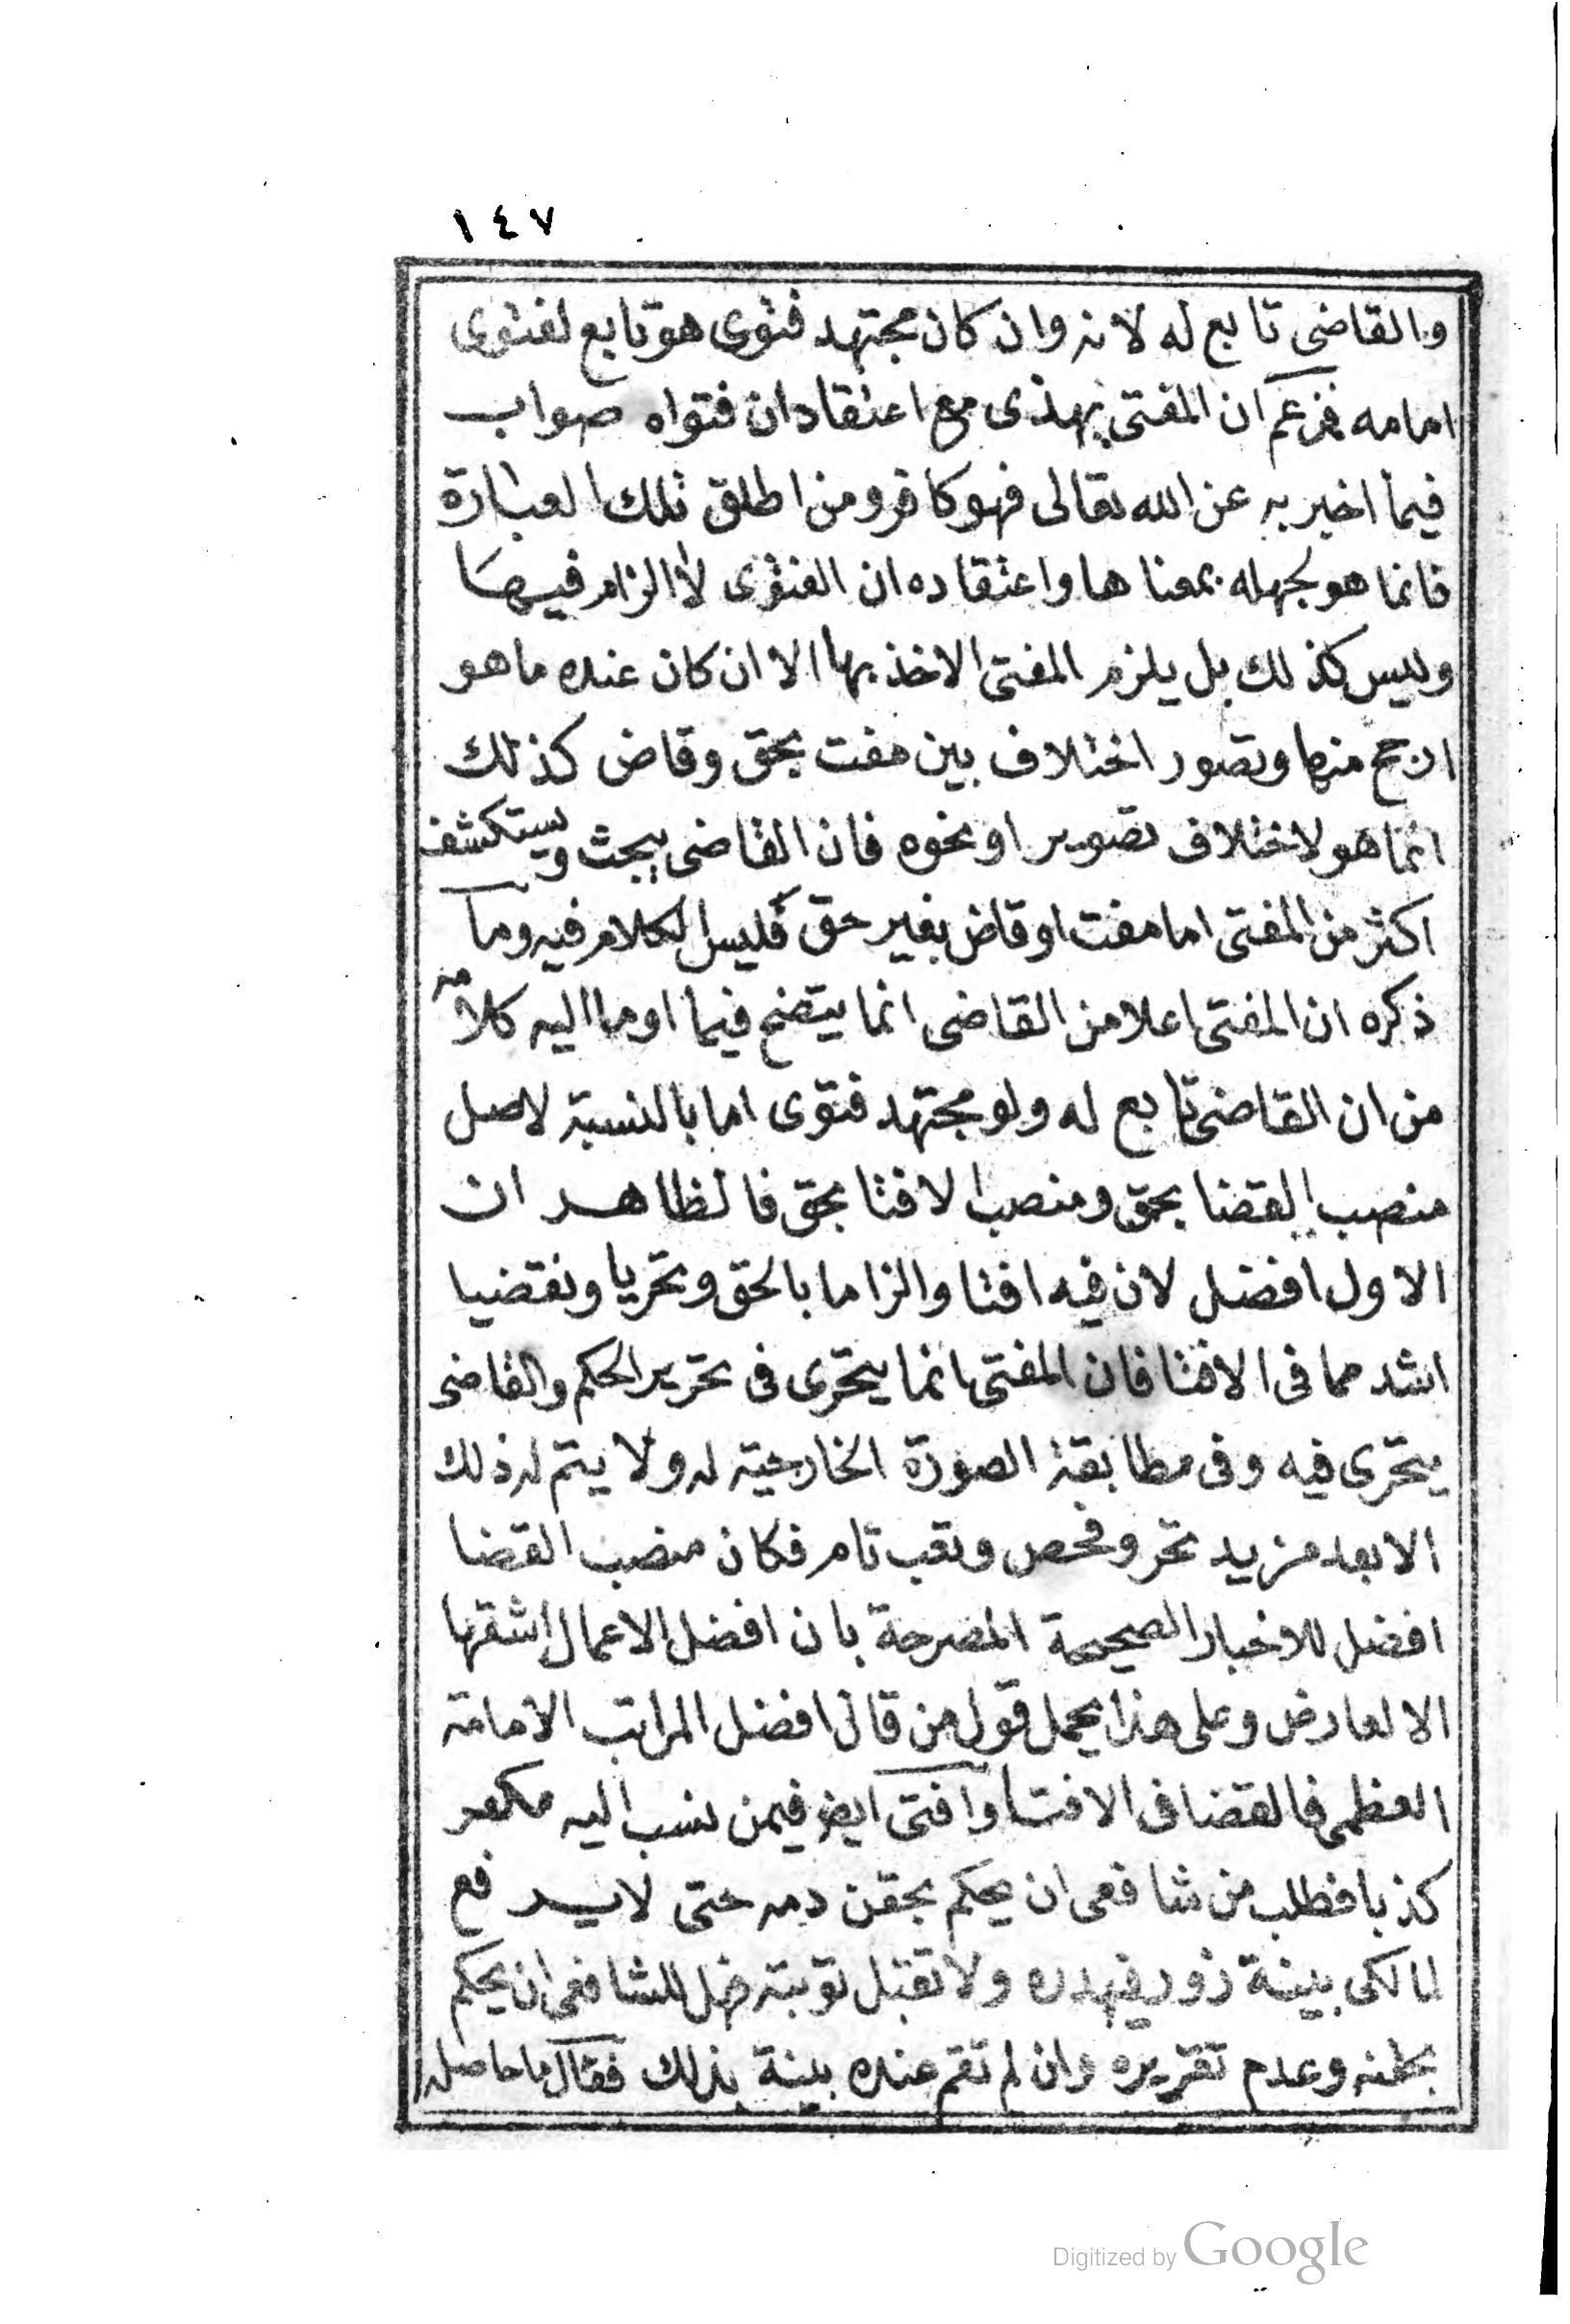 ١٤٧
والقاضى تابع له لانه وان كان مجتهد فتوى هو تابع لفتوى
امامه فمن زعم ان المفتى يهذى مع اعتقاد ان فتواه صواب
فيما اخبر به عن الله تعالى فهو كافر ومن اطلق تلك العبارة
فانما هو لجهله بمعناها واعتقاده ان الفتوى لا الزام فيها
وليس كذلك بل يلزم المفتى الاخذ بها الا ان كان عنده ما هو
ارجح منها وتصور اختلاف بين مفت بحق وقاض كذلك
انما هو لاختلاف تصوير او نحوه فان القاضى يبحث ويستكشف
اكثر من المفتى اما مفت او قاض بغير حق فليس الكلام فيه وما
ذكره ان المفتى اعلا من القاضى انما يتضح فيما اوما اليه كلامه
من ان القاضى تابع له ولو مجتهد فتوى اما بالنسبة لاصل
منصب القضا بحق ومنصب الافتا بحق فالظاهر ان
الاول افضل لان فيه افتا والزاما بالحق وتحريا ونقضيا
اشد مما فى الافتا فان المفتى انما يتحرى فى تحرير الحكم والقاضى
يتحرى فيه وفى مطابقة الصورة الخارجية له ولا يتم له ذلك
الا بعد مزيد تحر وفحص وتعب تام فكان منصب القضا
افضل للاخبار الصحيحة المصرحة بان افضل الاعمال اشقها
الا لعارض وعلى هذا يحمل قول من قال افضل المراتب الامامة
العظمى فالقضا فالافتا وافتى ايض فيمن نسب اليه مكفر
كذبا فطلب من شافعى ان يحكم بحقن دمه حتى لا يرفع
لمالكى ببينة زور فيهدره ولا تقبل توبته ضل للشافعى ان يحكم
بحقنه وعدم تقريره وان لم تقم عنده بينة بذلك فقال ما حاصله
Digitized by Google